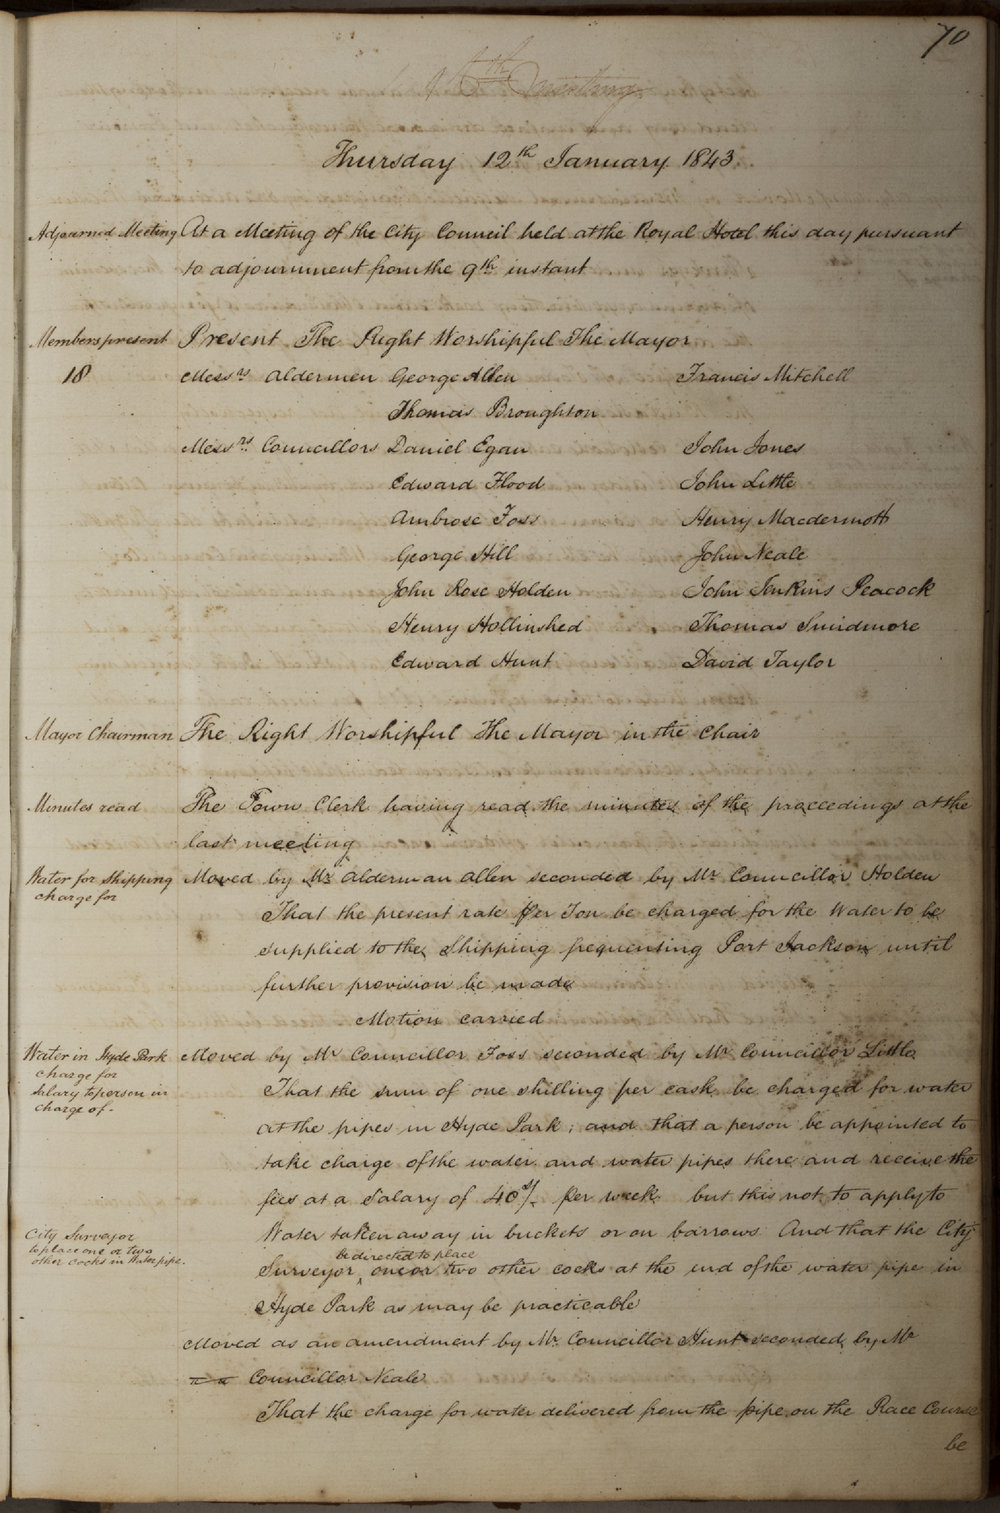 70
th meeting
Thursday 12th January 1843
Adjourned Meeting At a Meeting of the City Council held at the Royal Hotel this day pursuant
to adjournment from the 9th instant
Members present Present The Right Worshipful The Mayor
18 Messrs Aldermen George Allen Francis Mitchell
Thomas Broughton
Messrs Councillors Daniel Egan John Jones
Edward Flood John Little
Ambrose Foss Henry Macdermott
George Hill John Neale
John Rose Holden John Jenkins Peacock
Henry Hollinshed Thomas Smidmore
Edward Hunt David Taylor
Mayor Chairman The Right Worshipful The Mayor in the Chair
Minutes read The Town Clerk having read the minutes of the proceedings at the
last meeting
Water for Shipping Moved by Mr Alderman Allen seconded by Mr Councillor Holden
charge for
That the present rate per Ton be charged for the Water to be
supplied to the Shipping frequenting Port Jackson until
further provision be made
Motion carried
Water in Hyde Park Moved by Mr Councillor Foss seconded by Mr Councillor Little
charge for
Salary to person in That the sum of one shilling per cask be charged for water
charge of -
at the pipes in Hyde Park; and that a person be appointed to
take charge of the water and water pipes there and receive the
fees at a Salary of 40s/. per week but this not to apply to
City Surveyor Water taken away in buckets or on barrows And that the City
to place one or two
other cocks in Water pipe.
be directed to place
Surveyor ^ one or two other cocks at the end of the water pipe in
Hyde Park as may be practicable
Moved as an amendment by Mr Councillor Hunt seconded by Mr
Councillor Neale
That the charge for water delivered from the pipe on the Race Course
be